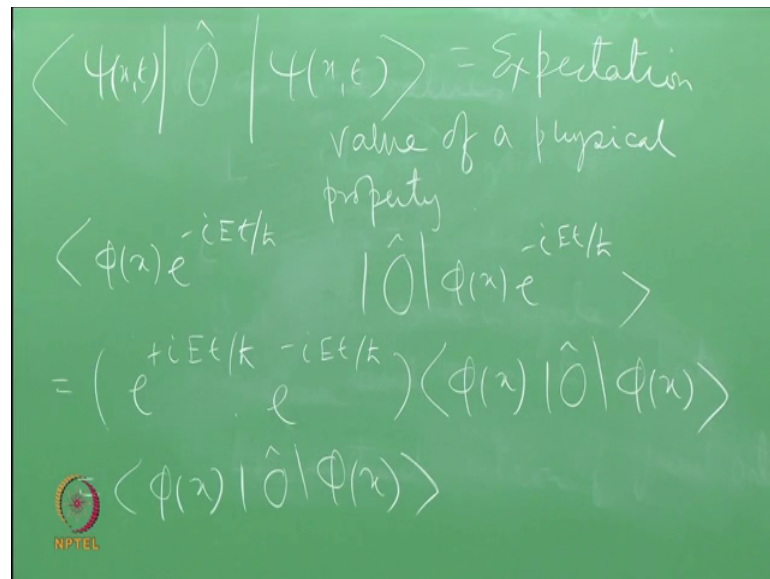 ⟨ψ(x,t)|Ô|ψ(x,t)⟩ = Expectation
value of a physical
property.
⟨φ(x)e^{-iEt/ħ} |Ô|φ(x)e^{-iEt/ħ}⟩
= (e^{+iEt/ħ} . e^{-iEt/ħ})⟨φ(x)|Ô|φ(x)⟩
= ⟨φ(x)|Ô|φ(x)⟩
NPTEL